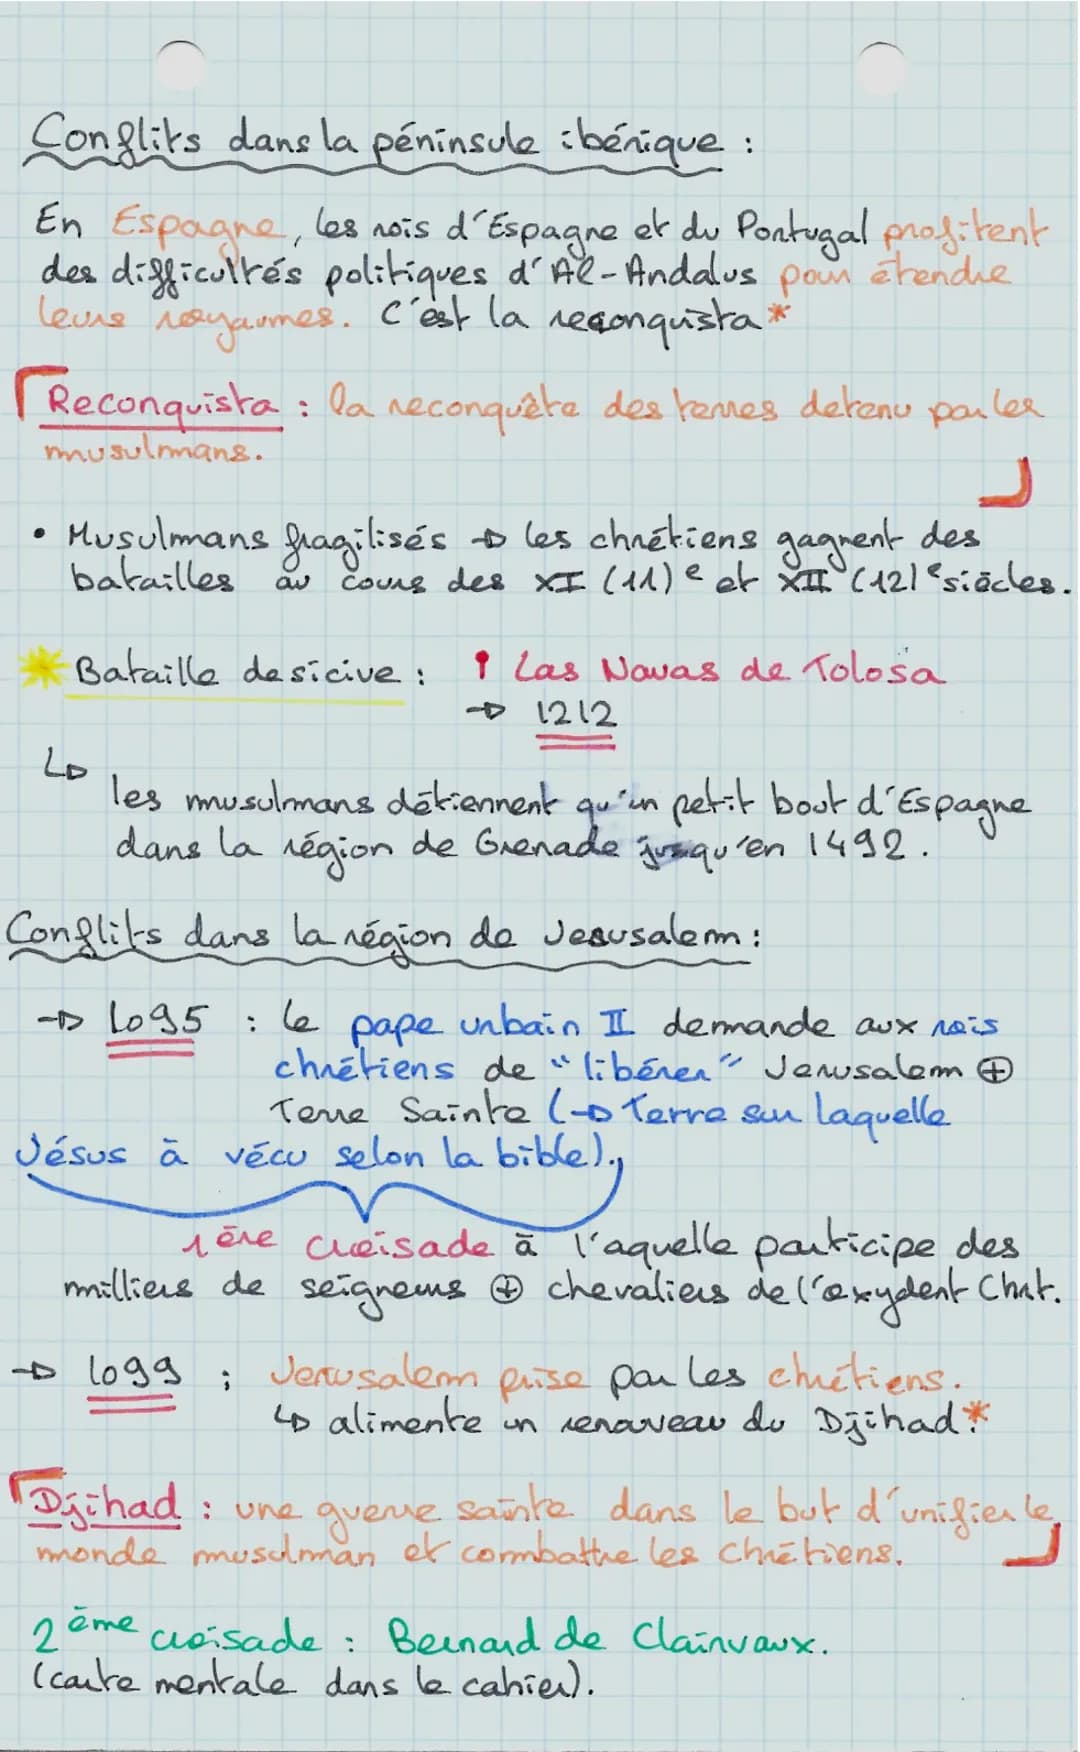 Conflits dans la péninsule ibérique :
En Espagne, les rois d'Espagne et du Portugal profitent
des difficultés politiques d'Al-Andalus pour étendre
leurs royaumes. C'est la reconquista *
Reconquista : la reconquête des terres detenu par les
musulmans.
• Musulmans fragilisés → les chrétiens gagnent des
batailles au cours des XI (11)e et XII (12)e siècles.
* Bataille desicive : Las Navas de Tolosa
→ 1212
↳ les musulmans détiennent qu'un petit bout d'Espagne
dans la région de Grenade jusqu'en 1492.
Conflits dans la région de Jerusalem :
→ 1095 : le pape urbain II demande aux rois
chrétiens de "libérer" Jerusalem ⊕
Terre Sainte (→ Terre sur laquelle
Jésus à vécu selon la bible).
1ère croisade à l'aquelle participe des
milliers de seigneurs ⊕ chevaliers de l'oxydent Chrt.
→ 1099 : Jerusalem prise par les chrétiens.
↳ alimente un renouveau du Djihad*
Djihad : une guerre sainte dans le but d'unifier le
monde musulman et combattre les chrétiens.
2ème croisade : Bernard de Clairvaux.
(carte mentale dans le cahier).